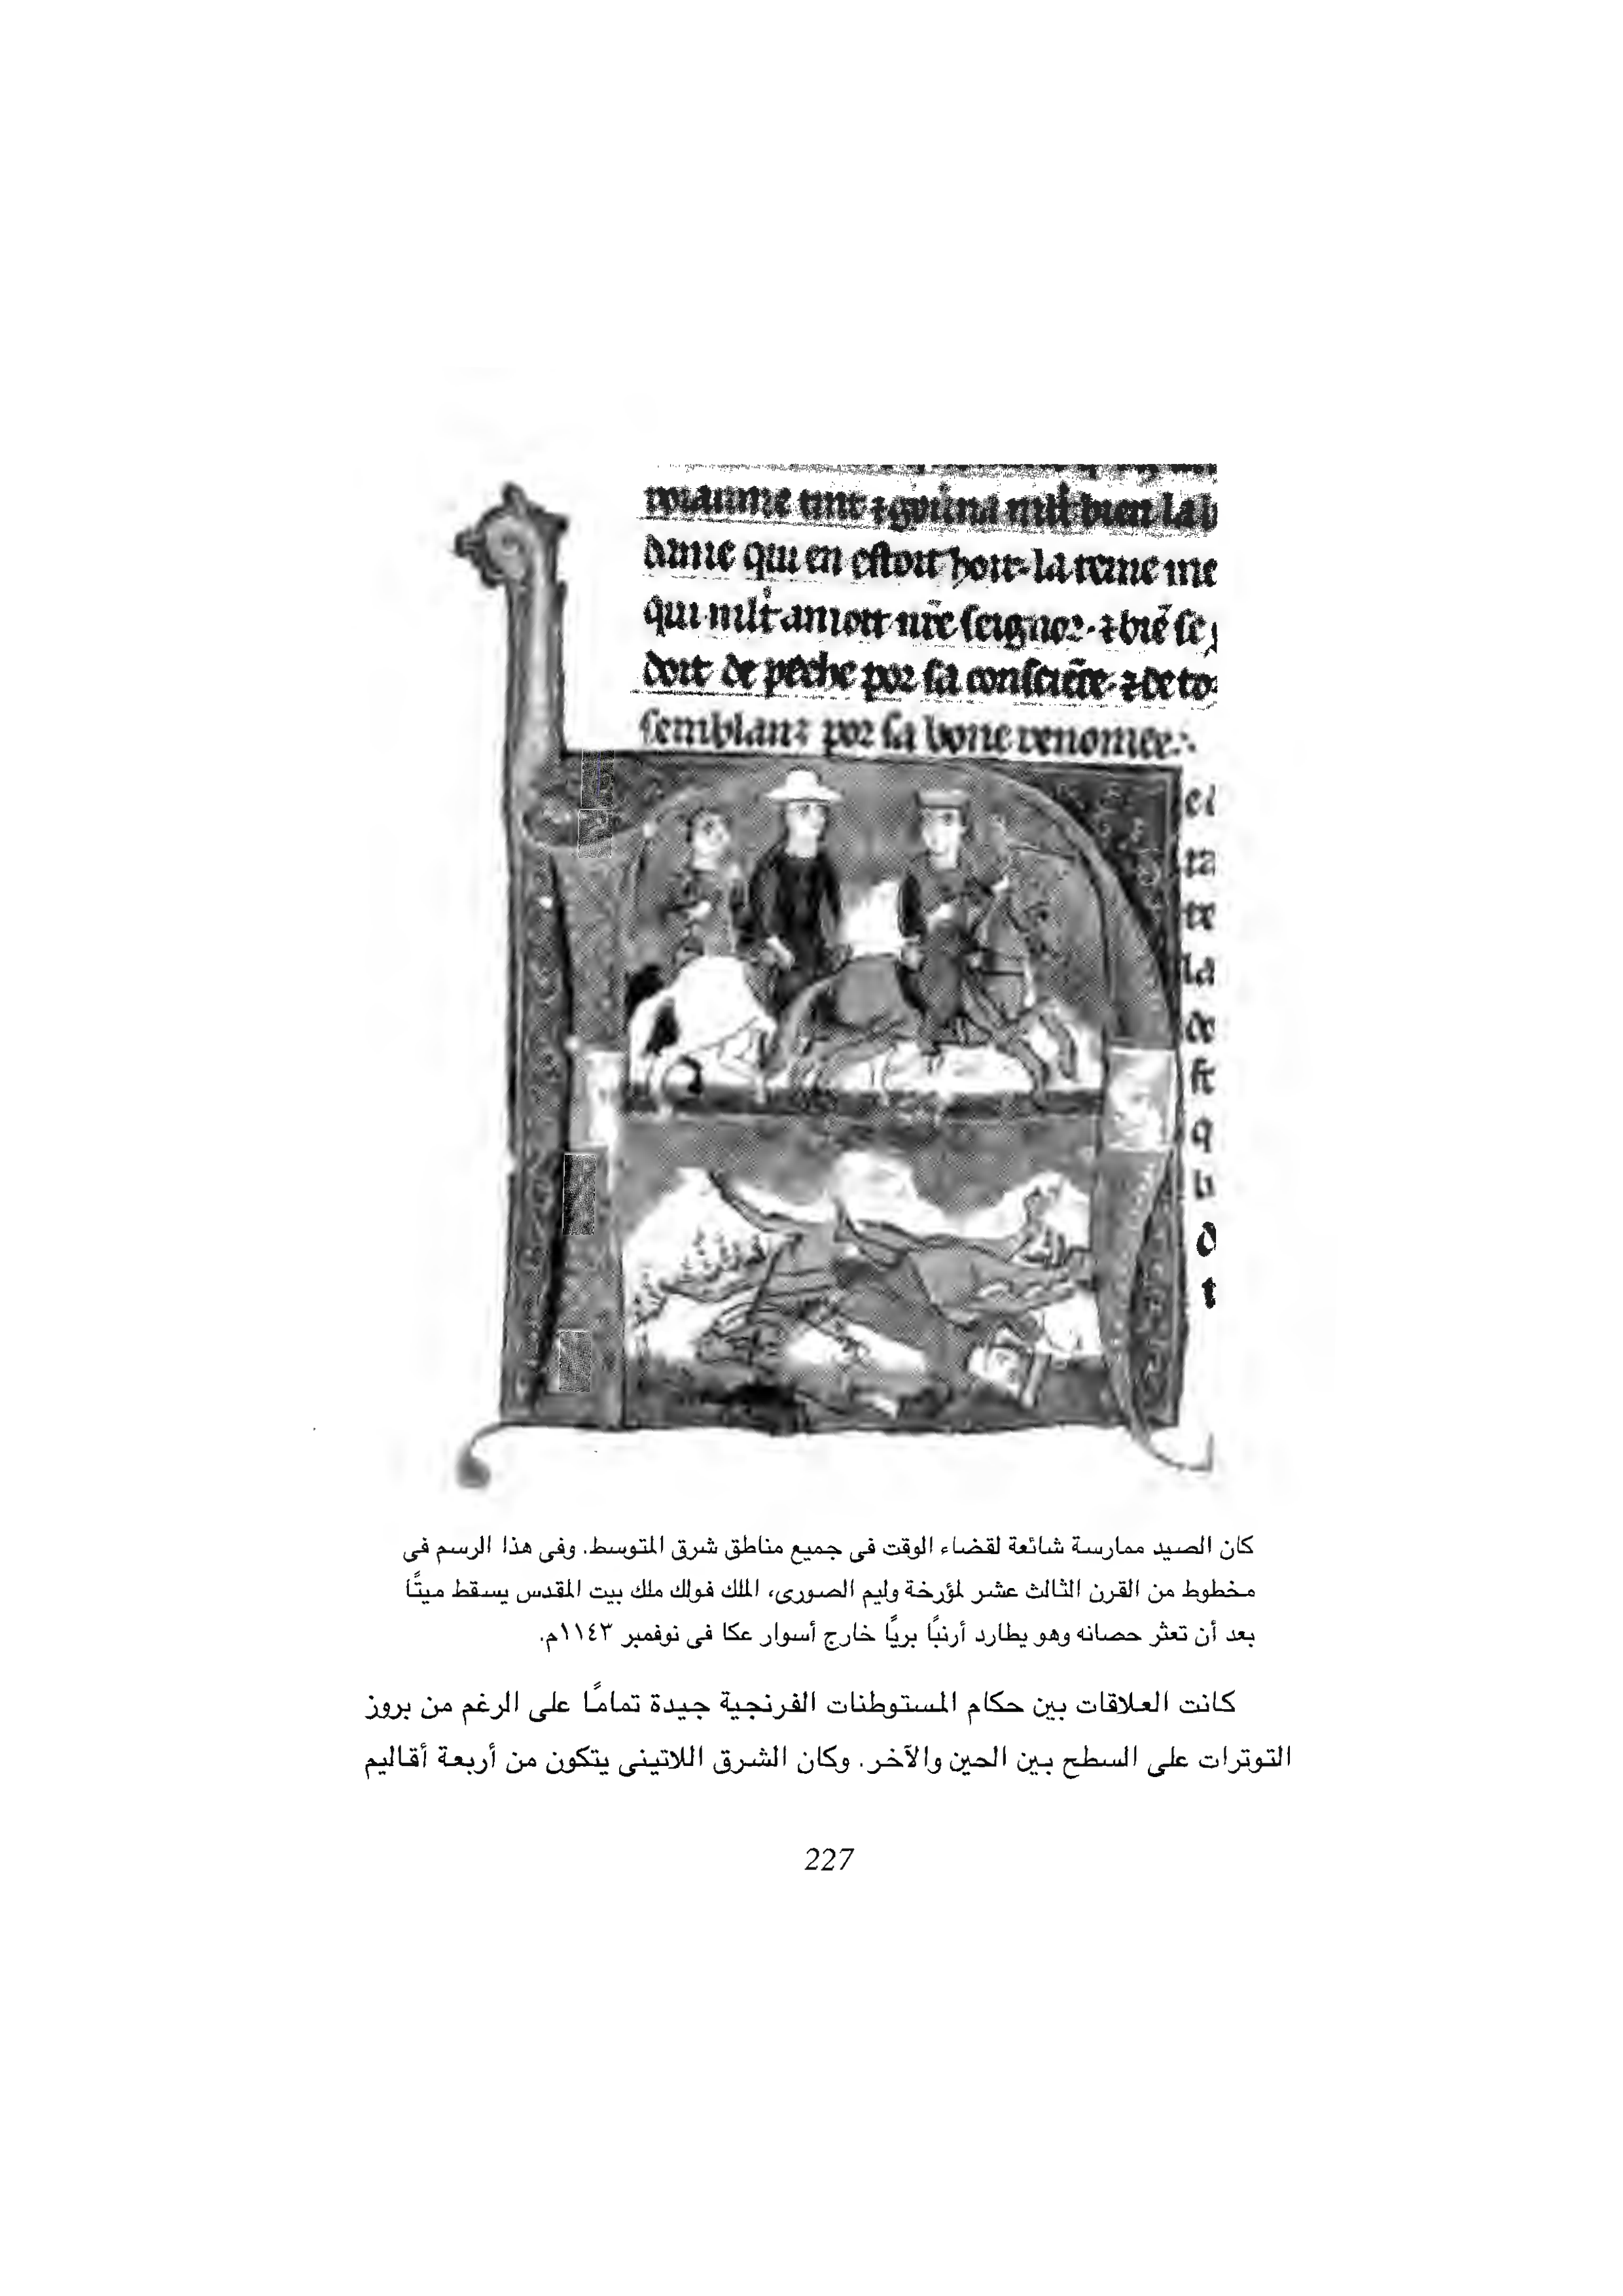 dame qui en estoit hoir. la reine me
qui mlt amoit nre seignor. ⁊ biē se
doit de peche por sa consciēce. ⁊ de to
semblanz por sa bone renomee.
ta
te
la
de
st
q
d
t
كان الصيد ممارسة شائعة لقضاء الوقت فى جميع مناطق شرق المتوسط. وفى هذا الرسم فى
مخطوط من القرن الثالث عشر لمؤرخة وليم الصورى، الملك فولك ملك بيت المقدس يسقط ميتًا
بعد أن تعثر حصانه وهو يطارد أرنبًا بريًا خارج أسوار عكا فى نوفمبر ١١٤٣م.
كانت العلاقات بين حكام المستوطنات الفرنجية جيدة تمامًا على الرغم من بروز
التوترات على السطح بين الحين والآخر. وكان الشرق اللاتينى يتكون من أربعة أقاليم
227